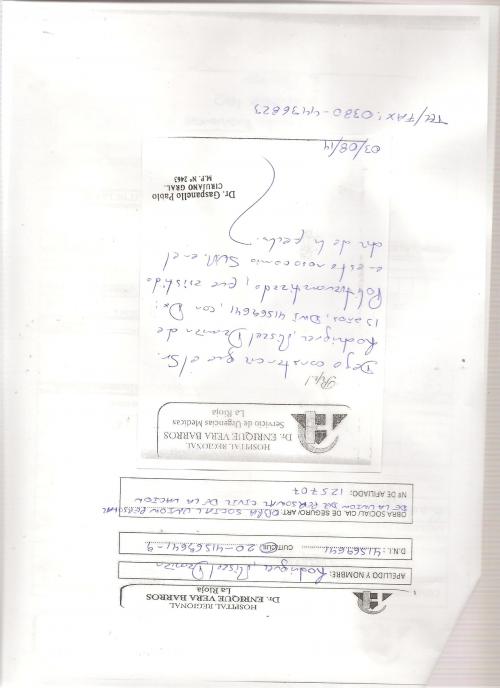 HOSPITAL REGIONAL
Dr. ENRIQUE VERA BARROS
La Rioja
APELLIDO Y NOMBRE: Rodriguez, Damián
D.N.I.: 41569641 CUIT/CUIL 20-41569641-9
OBRA SOCIAL/ CIA. DE SEGURO/ ART: OBRA SOCIAL UNION PERSONAL
DE LA UNION DEL PERSONAL CIVIL DE LA NACION
Nº DE AFILIADO: 125707
HOSPITAL REGIONAL
Dr. ENRIQUE VERA BARROS
Servicio de Urgencias Medicas
La Rioja
Dejo constancia que el Sr.
Rodriguez, Damián de
15 años, DNI 41569641, con Dx:
Politraumatizado, fue asistido
en este nosocomio en el
día de la fecha.
Dr. Gaspanello Pablo
CIRUJANO GRAL.
M.P. Nº 2463
03/08/14
TEL/FAX: 0380-4436823